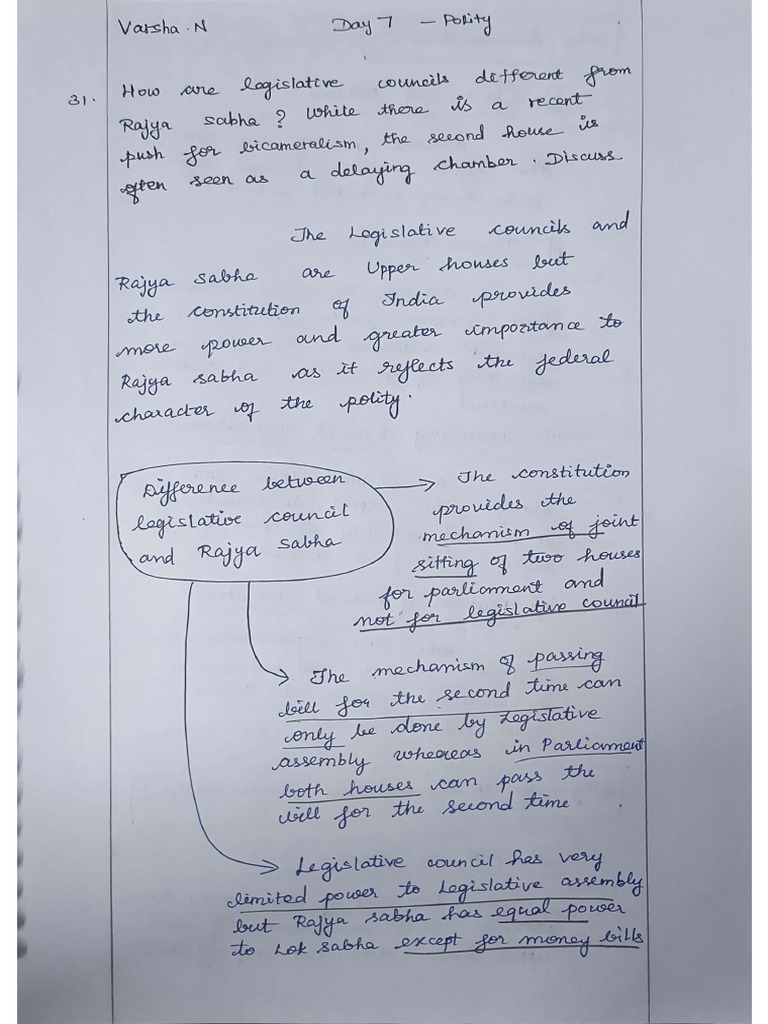 Varsha.N Day 7 - Polity
31. How are legislative councils different from
Rajya sabha? While there is a recent
push for bicameralism, the second house is
often seen as a delaying chamber. Discuss
The Legislative councils and
Rajya sabha are Upper houses but
the constitution of India provides
more power and greater importance to
Rajya sabha as it reflects the federal
character of the polity.
Difference between
legislative council
and Rajya sabha
The constitution
provides the
mechanism of joint
sitting of two houses
for parliament and
not for legislative council
The mechanism of passing
bill for the second time can
only be done by Legislative
assembly whereas in Parliament
both houses can pass the
bill for the second time
Legislative council has very
limited power to Legislative assembly
but Rajya sabha has equal power
to Lok sabha except for money bills